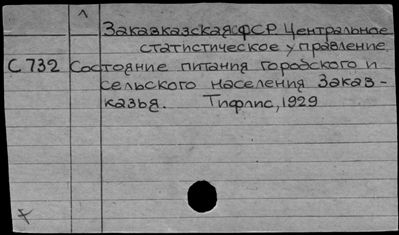 Закавказская ФСР. Центральное
статистическое управление.
С 732 Состояние питания городского и
сельского населения Закав-
казья. Тифлис, 1929